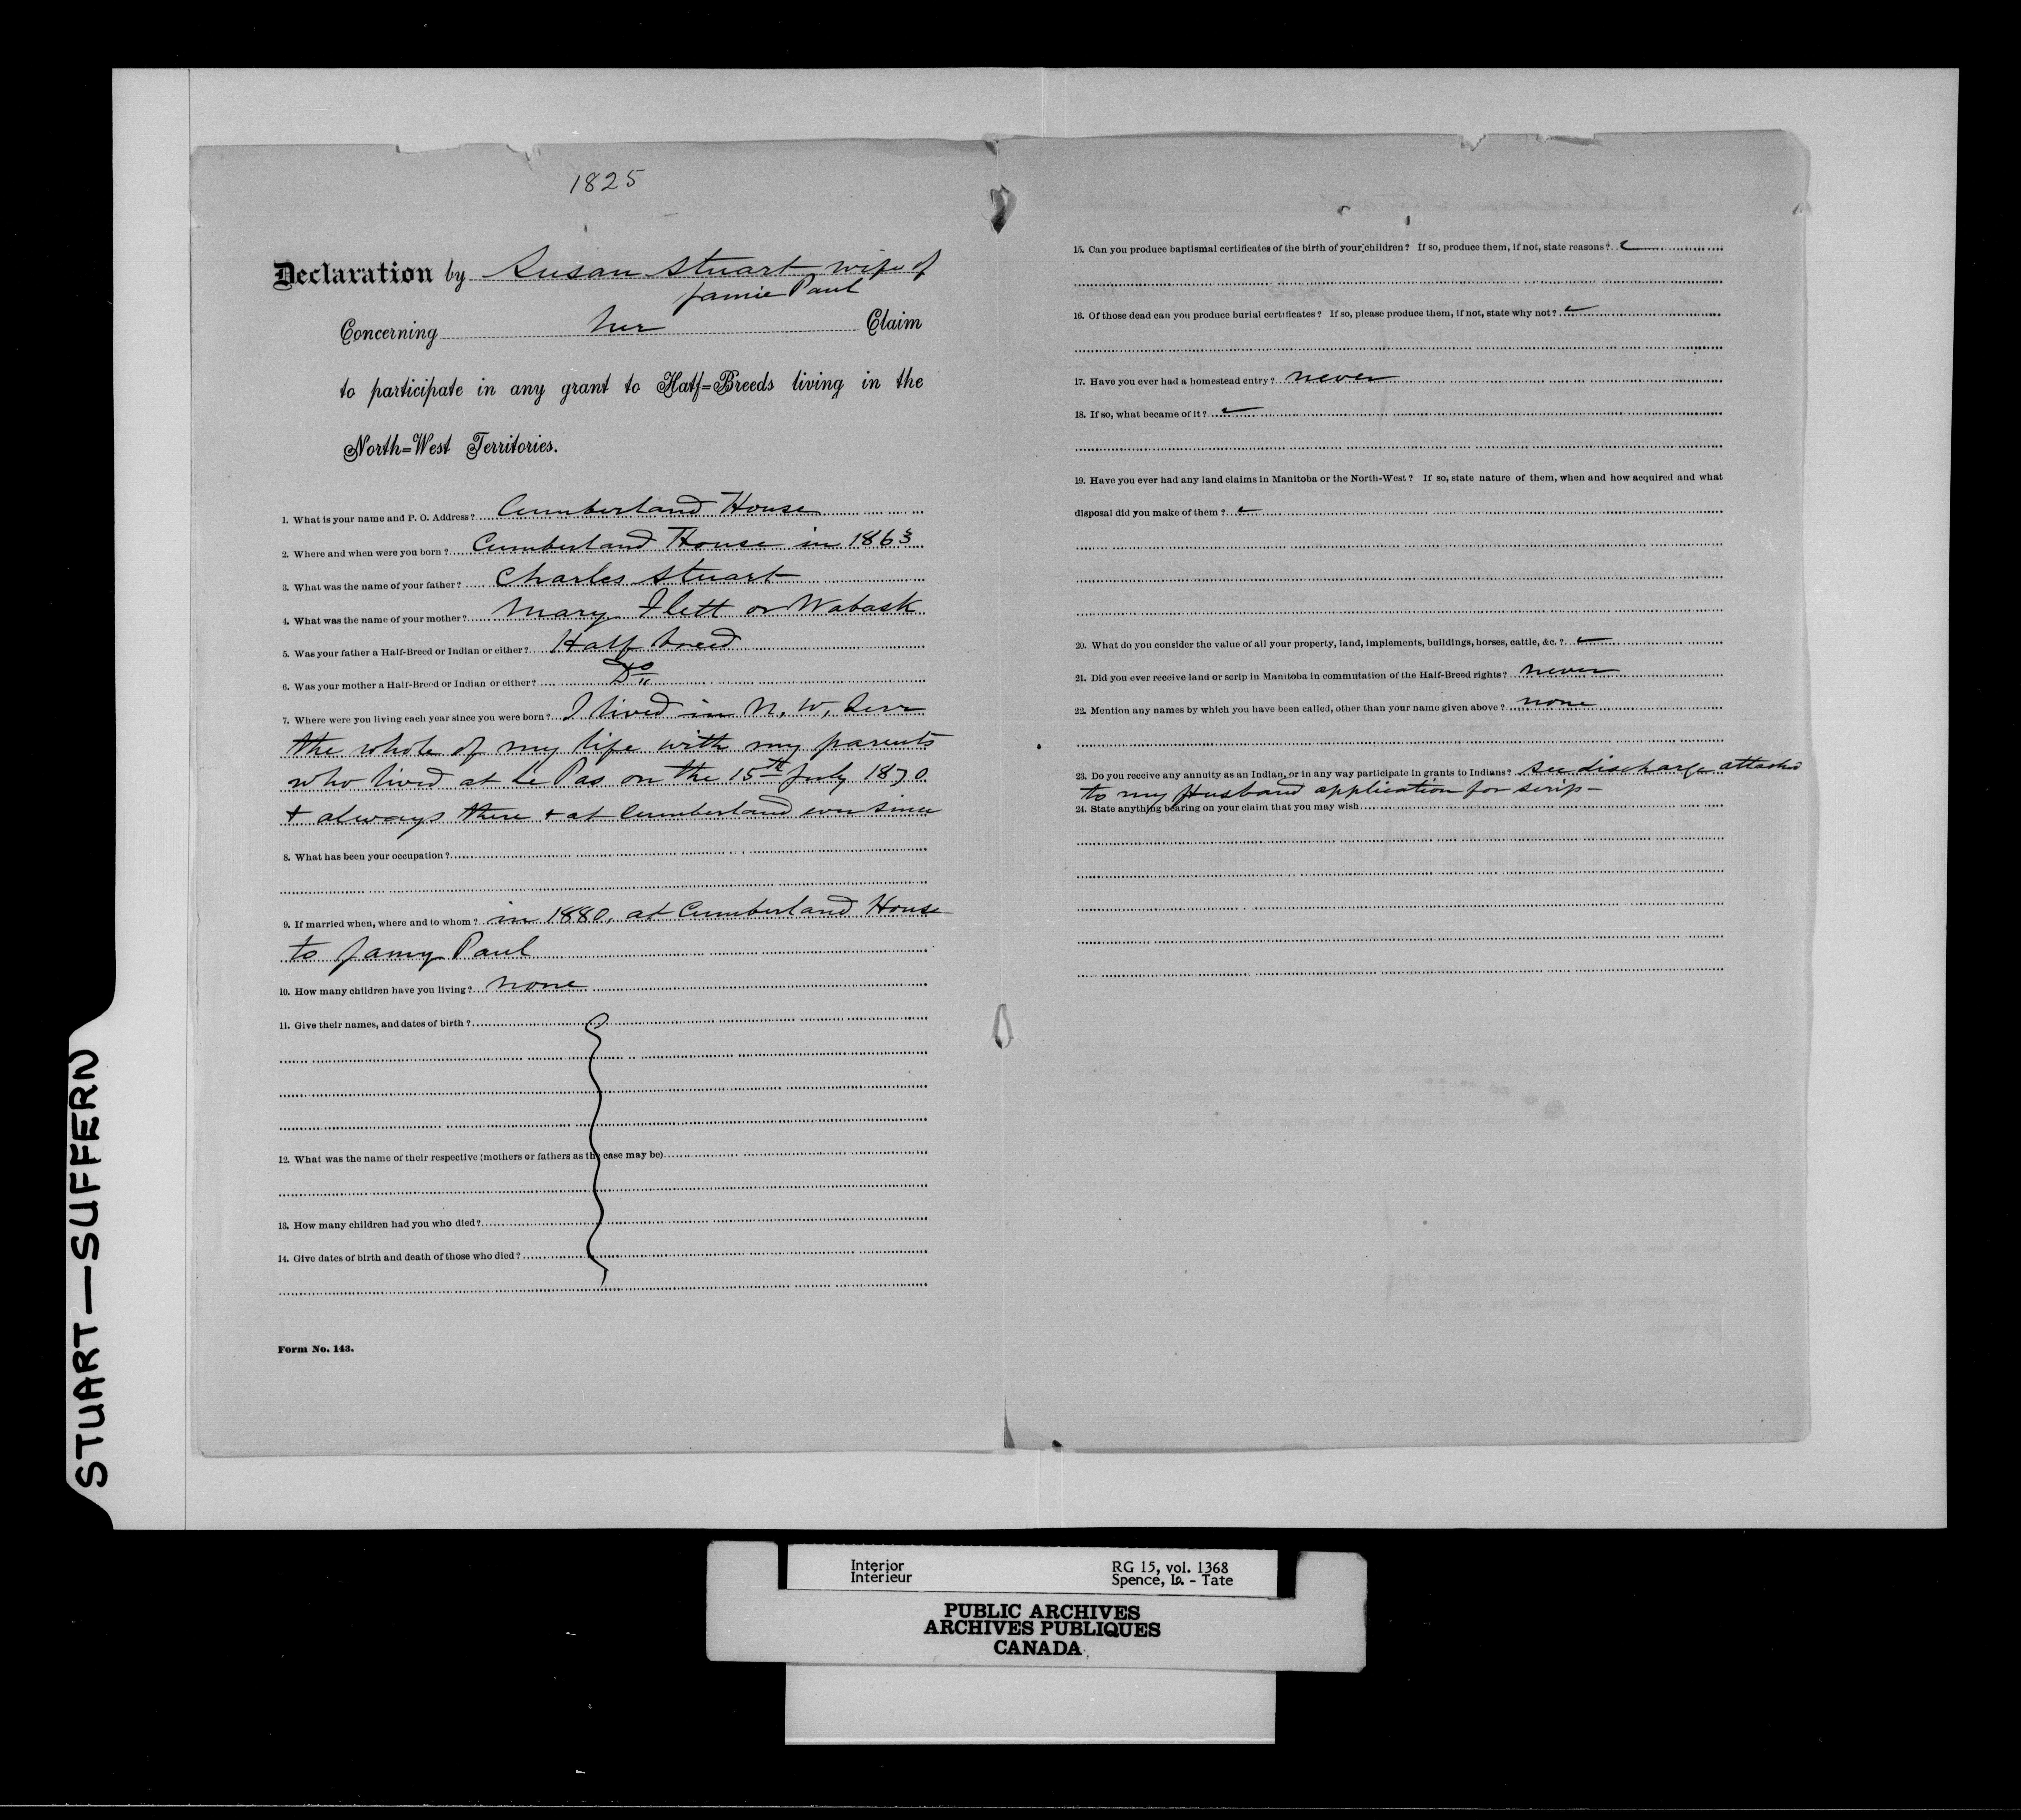 1825
Declaration by Susan Stuart wife of
Jamie Paul
Concerning her Claim
to participate in any grant to Half=Breeds living in the
North=West Territories.
1. What is your name and P. O. Address? Cumberland House
2. Where and when were you born? Cumberland House in 1863
3. What was the name of your father? Charles Stuart
4. What was the name of your mother? Mary Flett or Wabask
5. Was your father a Half-Breed or Indian or either? Half breed
6. Was your mother a Half-Breed or Indian or either? Do
7. Where were you living each year since you were born? I lived in N. W. Terr
the whole of my life with my parents
who lived at Le Pas on the 15th July 1870
+ always there + at Cumberland ever since
8. What has been your occupation?
9. If married when, where and to whom? in 1880, at Cumberland House
to Jamy Paul
10. How many children have you living? none
11. Give their names, and dates of birth?
12. What was the name of their respective (mothers or fathers as the case may be)
13. How many children had you who died?
14. Give dates of birth and death of those who died?
Form No. 143.
15. Can you produce baptismal certificates of the birth of your children? If so, produce them, if not, state reasons?
16. Of those dead can you produce burial certificates? If so, please produce them, if not, state why not?
17. Have you ever had a homestead entry? never
18. If so, what became of it?
19. Have you ever had any land claims in Manitoba or the North-West? If so, state nature of them, when and how acquired and what
disposal did you make of them?
20. What do you consider the value of all your property, land, implements, buildings, horses, cattle, &c.?
21. Did you ever receive land or scrip in Manitoba in commutation of the Half-Breed rights? never
22. Mention any names by which you have been called, other than your name given above? none
23. Do you receive any annuity as an Indian, or in any way participate in grants to Indians? see discharge attached
to my Husband application for scrip -
24. State anything bearing on your claim that you may wish
STUART—SUFFERN
Interior
Intérieur
RG 15, vol. 1368
Spence, Lo. - Tate
PUBLIC ARCHIVES
ARCHIVES PUBLIQUES
CANADA